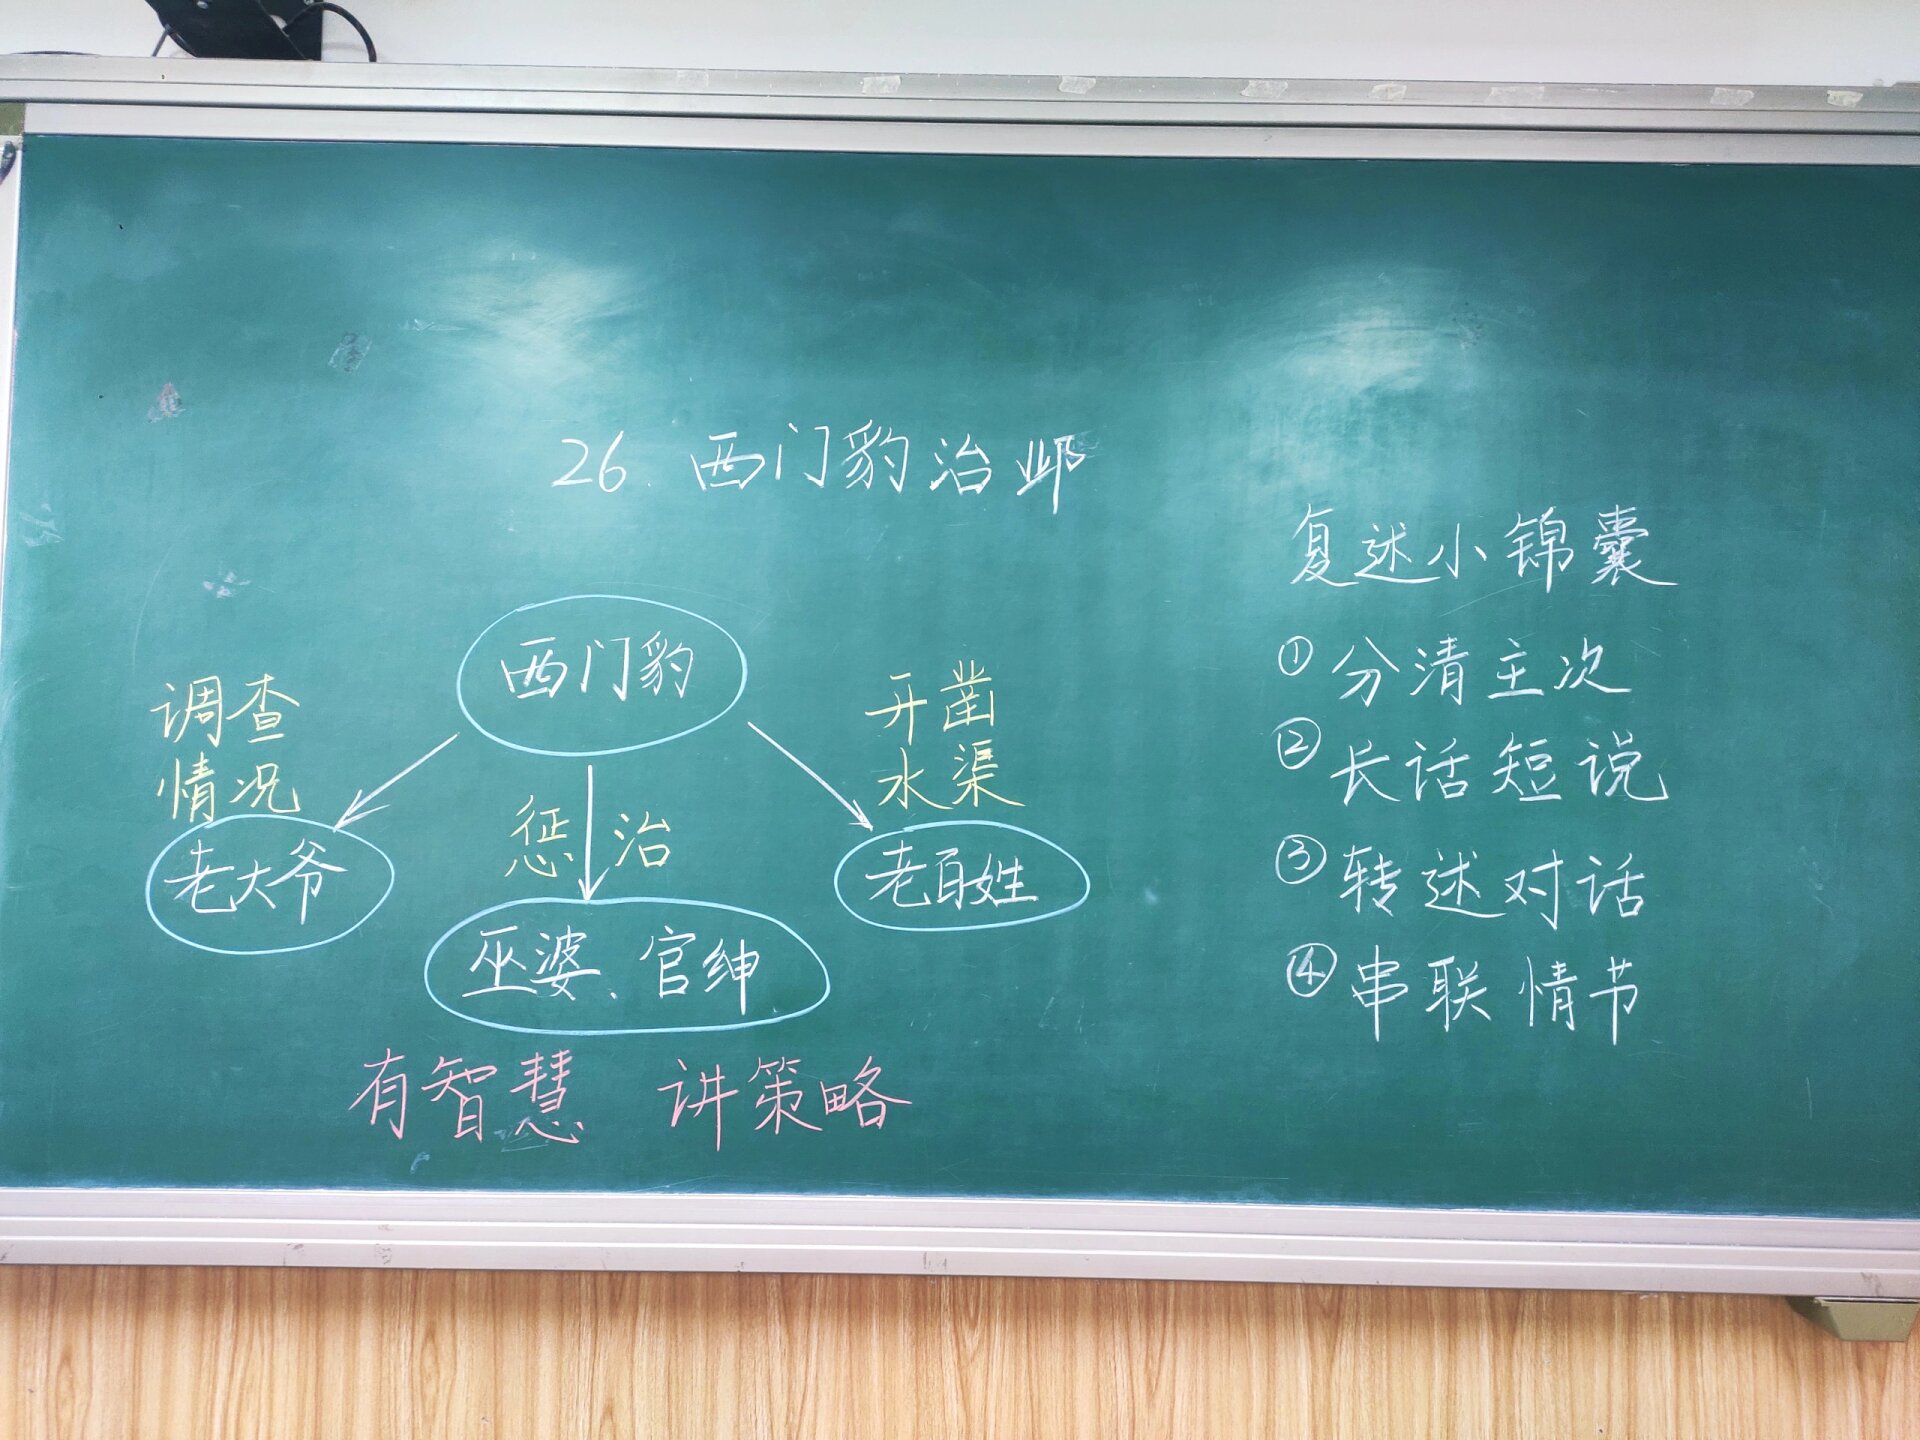 26.西门豹治邺
西门豹
调查
情况
老大爷
惩治
巫婆、官绅
开凿
水渠
老百姓
有智慧 讲策略
复述小锦囊
①分清主次
②长话短说
③转述对话
④串联情节